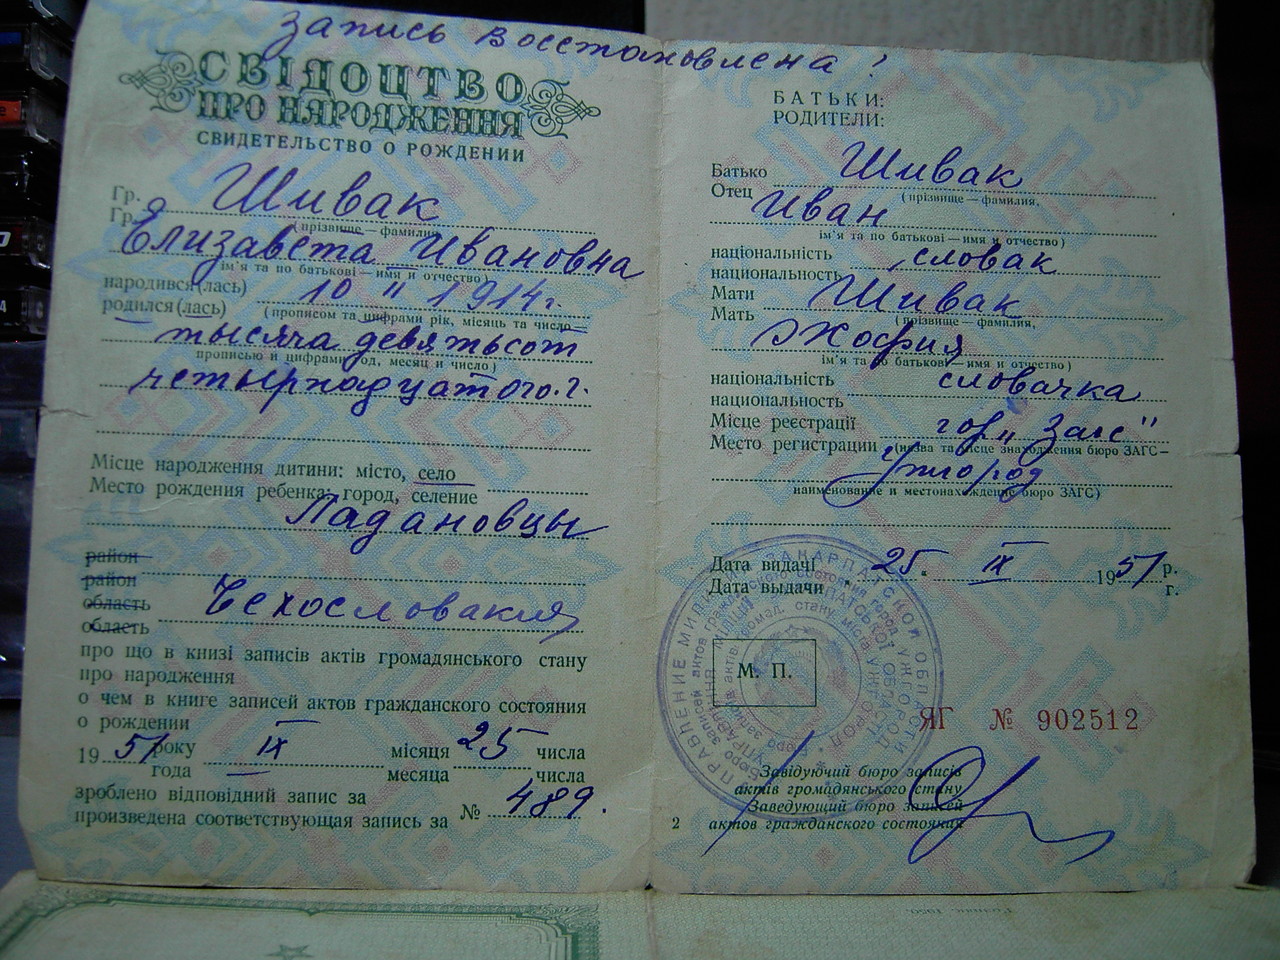 Запись восстановлена!
СВІДОЦТВО
ПРО НАРОДЖЕННЯ
СВИДЕТЕЛЬСТВО О РОЖДЕНИИ
Гр.
Гр. Шивак
(прізвище — фамилия)
Елизавета Ивановна
ім'я та по батькові — имя и отчество)
народився(лась)
родился(лась) 10 " 1914 г.
(прописом та цифрами рік, місяць та число —
тысяча девятьсот
прописью и цифрами год, месяц и число)
четырнадцатого. г.
Місце народження дитини: місто, село
Место рождения ребенка: город, селение
Ладановцы
район
район
область Чехословакия
область
про що в книзі записів актів громадянського стану
про народження
о чем в книге записей актов гражданского состояния
о рождении
1951 року IX місяця 25 числа
года месяца числа
зроблено відповідний запис за
произведена соответствующая запись за № 489.
БАТЬКИ:
РОДИТЕЛИ:
Батько Шивак
Отец (прізвище — фамилия,
Иван
ім'я та по батькові — имя и отчество)
національність словак
национальность
Мати Шивак
Мать (прізвище — фамилия,
Жофия
ім'я та по батькові — имя и отчество)
національність словачка
национальность
Місце реєстрації гор „Загс"
Место регистрации (назва та місце знаходження бюро ЗАГС —
Ужгород
наименование и местонахождение бюро ЗАГС)
Дата видачі 25. IX 1951 р.
Дата выдачи г.
М. П.
ЯГ № 902512
Завідуючий бюро записів
актів громадянського стану
Заведующий бюро записей
2 актов гражданского состояния